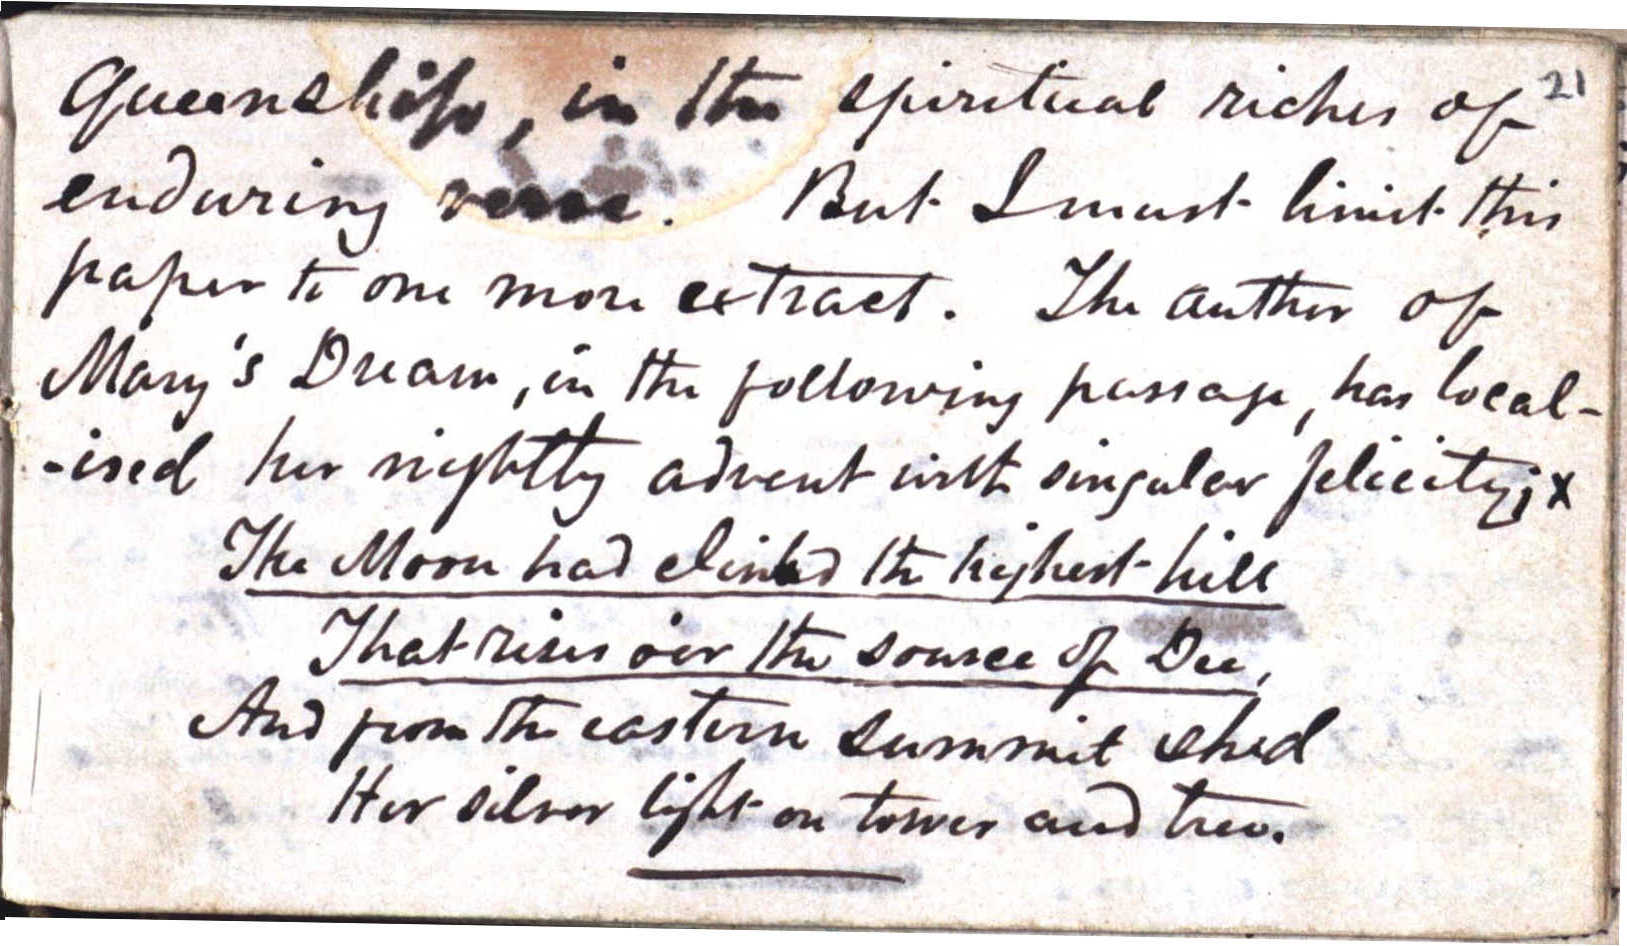 21
Queenship, in the spiritual riches of
enduring verse. But I must limit this
paper to one more extract. The author of
Mary's Dream, in the following passage, has local-
-ised her nightly advent with singular felicity; x
The Moon had climbed the highest hill
That rises o'er the source of Dee,
And from the eastern summit shed
Her silver light on tower and tree.